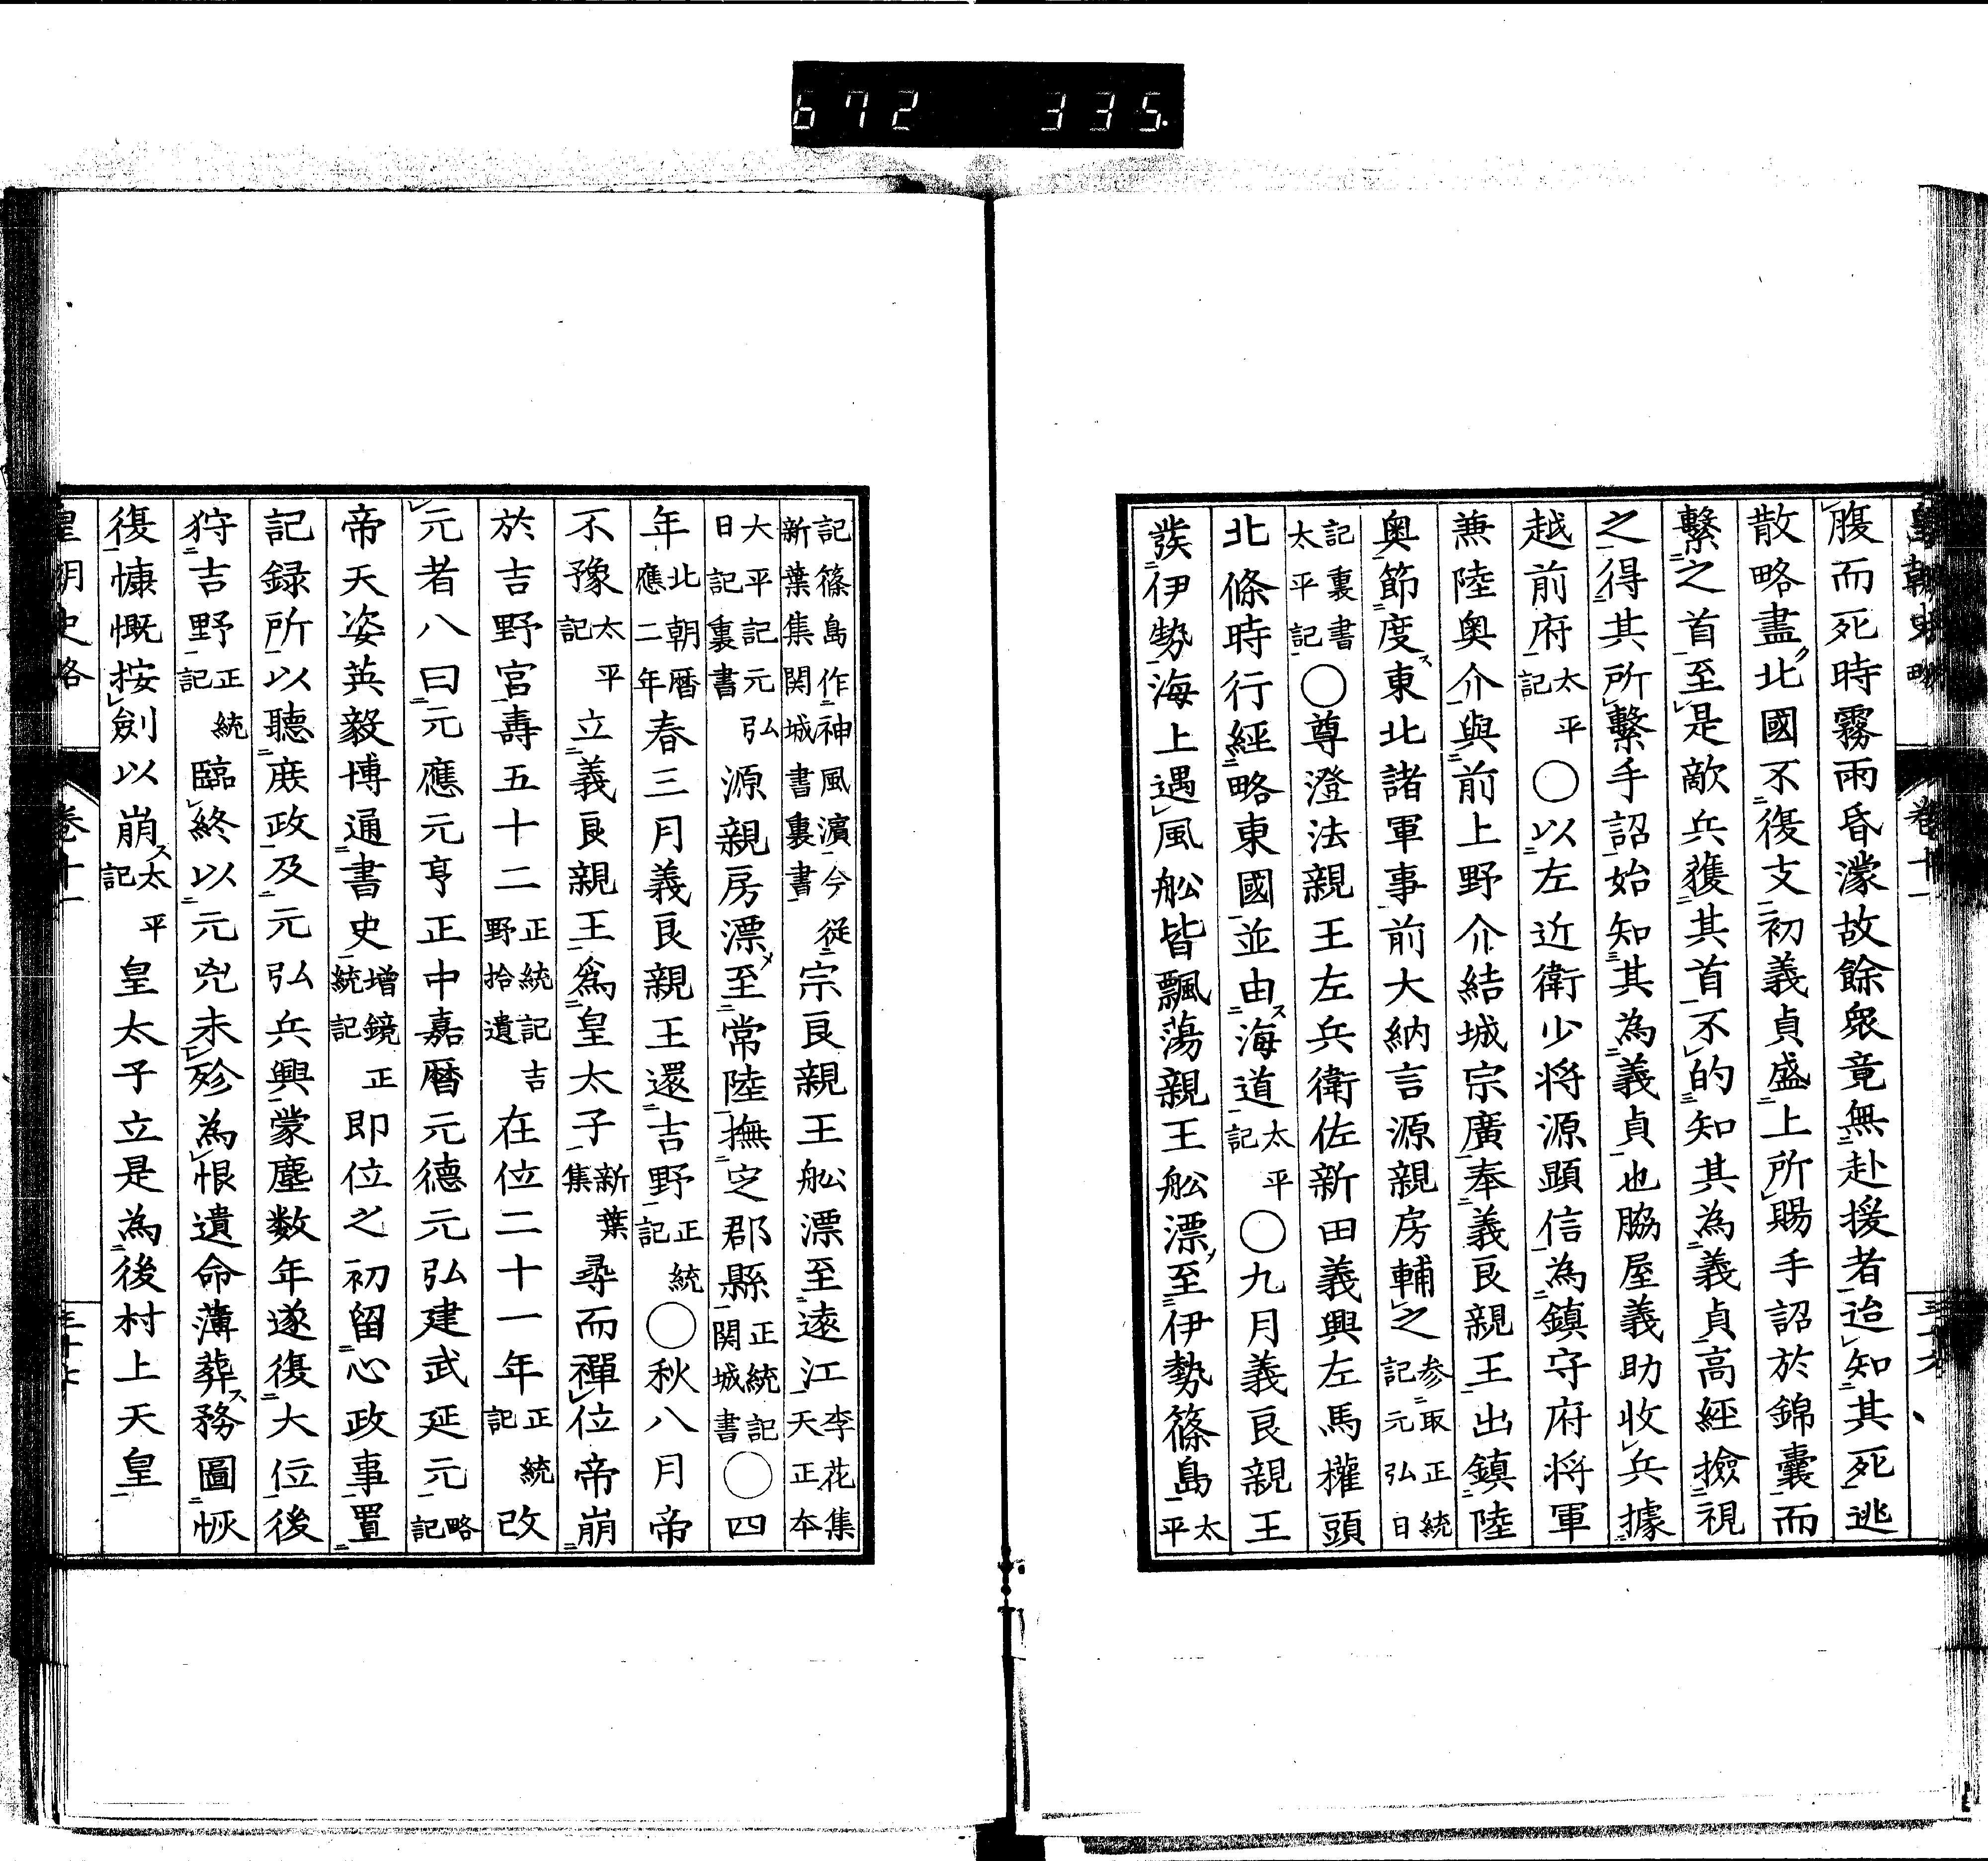 672 335
腹而死時霧雨昏濛故餘衆竟無赴援者迨知其死逃
散略盡北國不復支初義貞盛上所賜手詔於錦囊而
繫之首至是敵兵獲其首不的知其為義貞高經撿視
之得其所繫手詔始知其為義貞也脇屋義助收兵據
越前府太平記〇以左近衛少将源顕信為鎮守府将軍
兼陸奥介與前上野介結城宗廣奉義良親王出鎮陸
奥節度東北諸軍事前大納言源親房輔之参取正統記元弘日
記裏書太平記〇尊澄法親王左兵衛佐新田義興左馬權頭
北條時行經略東國並由海道太平記〇九月義良親王
発伊勢海上遇風舩皆飄蕩親王舩漂至伊勢篠島太平
記篠島作神風濵今從新葉集関城書裏書宗良親王舩漂至遠江李花集天正本
大平記元弘日記裏書源親房漂至常陸撫定郡縣正統記関城書〇四
年北朝暦應二年春三月義良親王還吉野正統記〇秋八月帝
不豫太平記立義良親王為皇太子新葉集尋而禪位帝崩
於吉野宮壽五十二正統記吉野拾遺在位二十一年正統記改
元者八曰元應元亨正中嘉暦元德元弘建武延元略記
帝天姿英毅博通書史增鏡正統記即位之初留心政事置
記録所以聽庶政及元弘兵興蒙塵数年遂復大位後
狩吉野正統記臨終以元兇未殄為恨遺命薄葬務圖恢
復慷慨按劍以崩太平記皇太子立是為後村上天皇
皇朝史略 卷十一